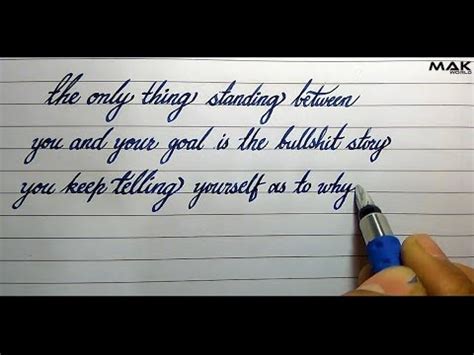 MAK
WORLD
the only thing standing between
you and your goal is the bullshit story
you keep telling yourself as to why